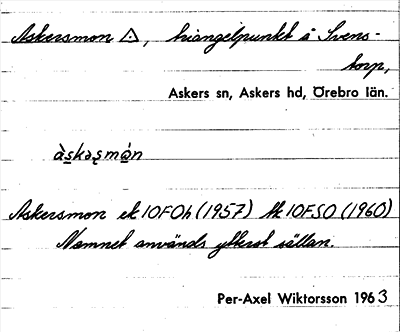 Askersmon △, triangelpunkt å Svens-
torp,
Askers sn, Askers hd, Örebro län.
àskəsmón
Askersmon ek 10FOh (1957) tk 10FSO (1960)
Namnet används ytterst sällan.
Per-Axel Wiktorsson 1963